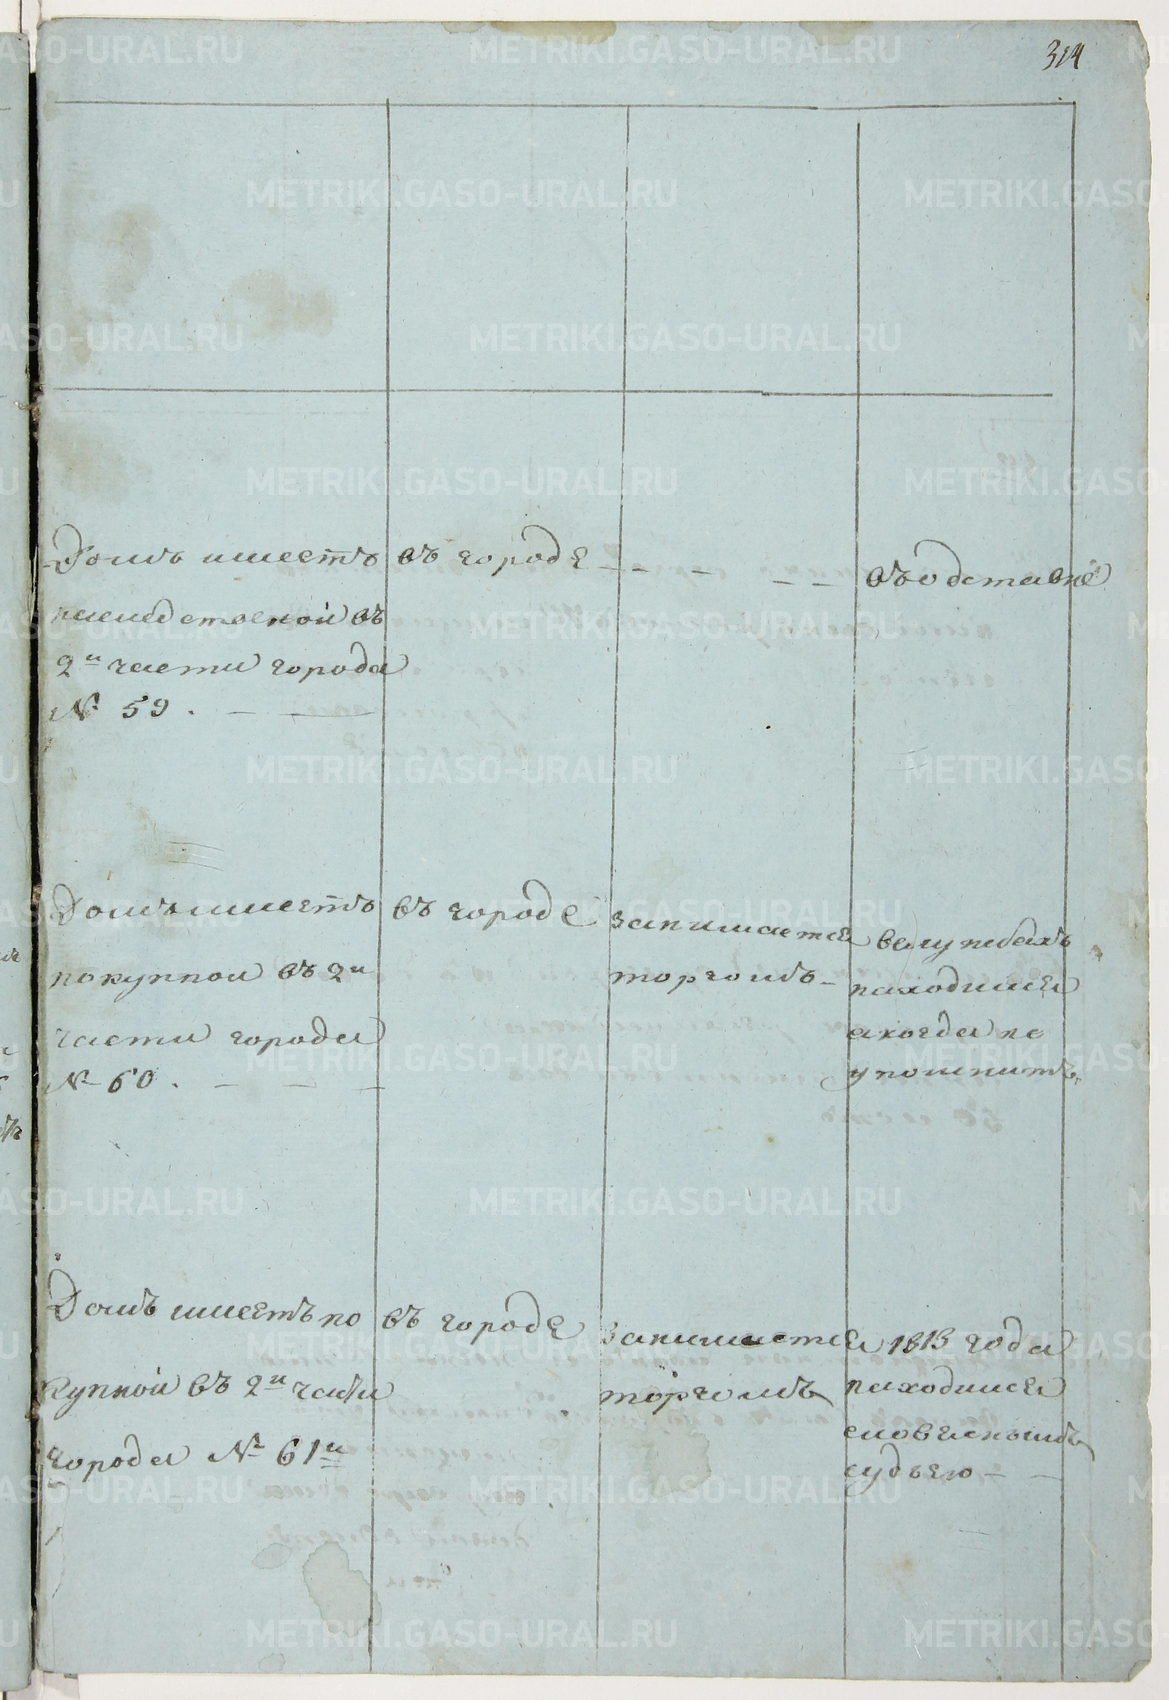 314
Домъ имеетъ
наследственой въ
2й части города
№ 59.
въ городе
въ одставке
Домъ имеетъ
покупной въ 2й
части города
№ 60.
въ городе
занимается
торгомъ
въ службахъ
находился
а когда не
упомнитъ
Домъ имеетъ по
купной въ 2й части
города № 61й
въ городе
занимается
торгомъ
1813 года
находился
словеснымъ
судьею
METRIKI.GASO-URAL.RU